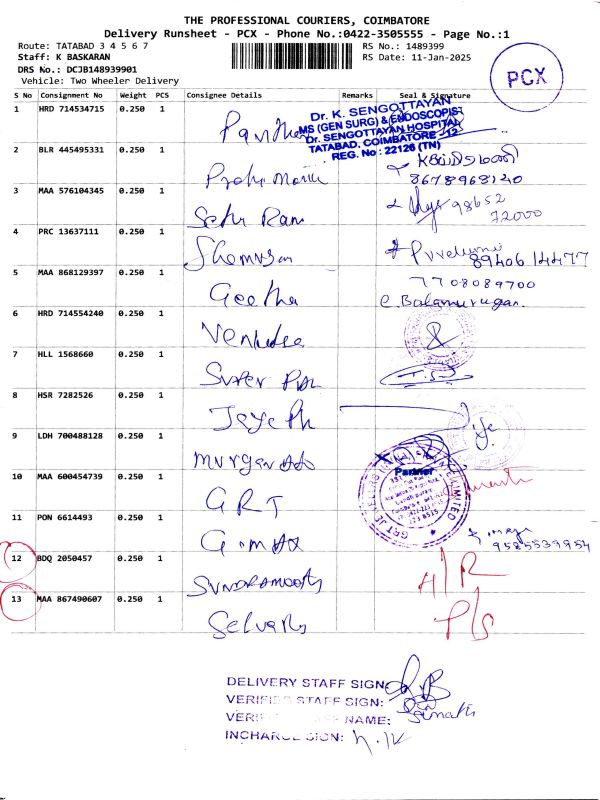 THE PROFESSIONAL COURIERS, COIMBATORE
Delivery Runsheet - PCX - Phone No.:0422-3505555 - Page No.:1
Route: TATABAD 3 4 5 6 7
RS No.: 1489399
Staff: K BASKARAN
RS Date: 11-Jan-2025
DRS No.: DCJB148939901
Vehicle: Two Wheeler Delivery
PCX
S No Consignment No Weight PCS Consignee Details Remarks Seal & Signature
1 HRD 714534715 0.250 1
Dr. K. SENGOTTAYAN
MS (GEN SURG) & ENDOSCOPIST
Dr. SENGOTTAYAN HOSPITAL
TATABAD, COIMBATORE - 12
REG. No : 22126 (TN)
2 BLR 445495331 0.250 1
8678968120
3 MAA 576104345 0.250 1 Sethu Ram 98652
72000
4 PRC 13637111 0.250 1
8940614477
5 MAA 868129397 0.250 1 Geetha 7708089700
C. Balamurugan.
6 HRD 714554240 0.250 1
7 HLL 1568660 0.250 1
8 HSR 7282526 0.250 1 Jaye Ph
9 LDH 700488128 0.250 1
Partner
GRT JEWELLERS LIMITED
10 MAA 600454739 0.250 1 GRT
11 PON 6614493 0.250 1
9585539954
12 BDQ 2050457 0.250 1 H/R
13 MAA 867490607 0.250 1 P/S
DELIVERY STAFF SIGN:
VERIFIED STAFF SIGN:
VERIFIED STAFF NAME:
INCHARGE SIGN: